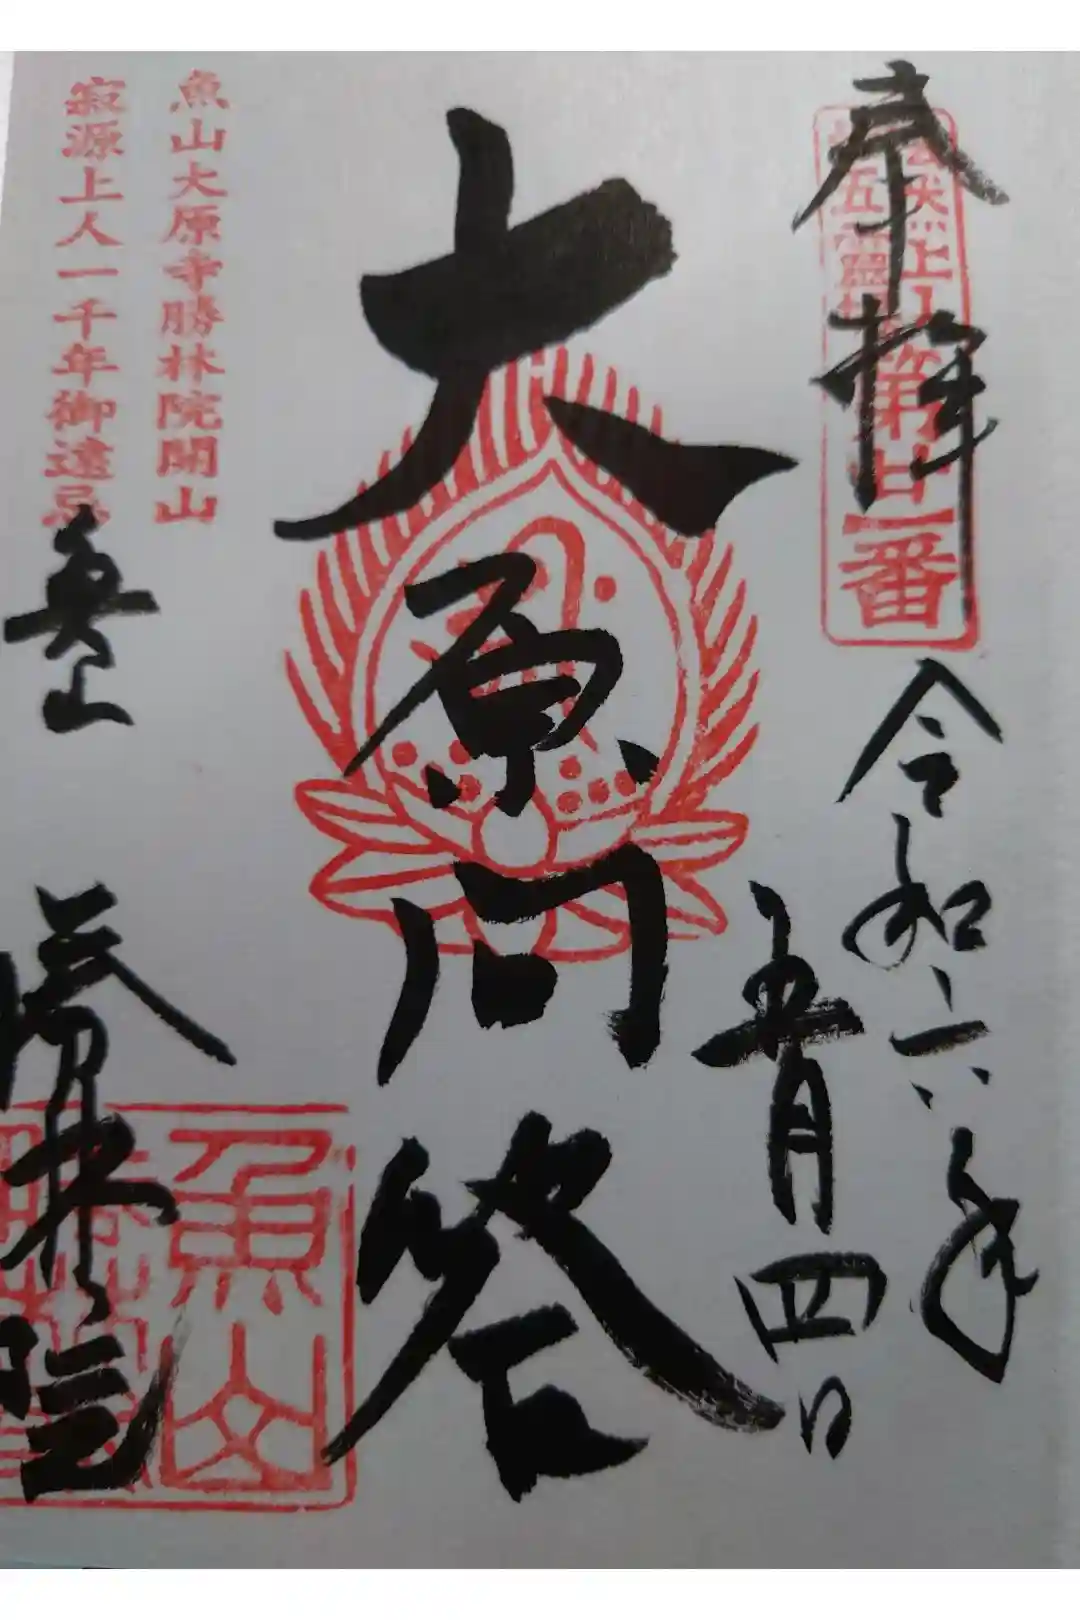 奉拝
法然上人
二十五霊場
第廿一番
令和六年
五月四日
大原問答
魚山大原寺勝林院開山
寂源上人一千年御遠忌
魚山
勝林院
魚山